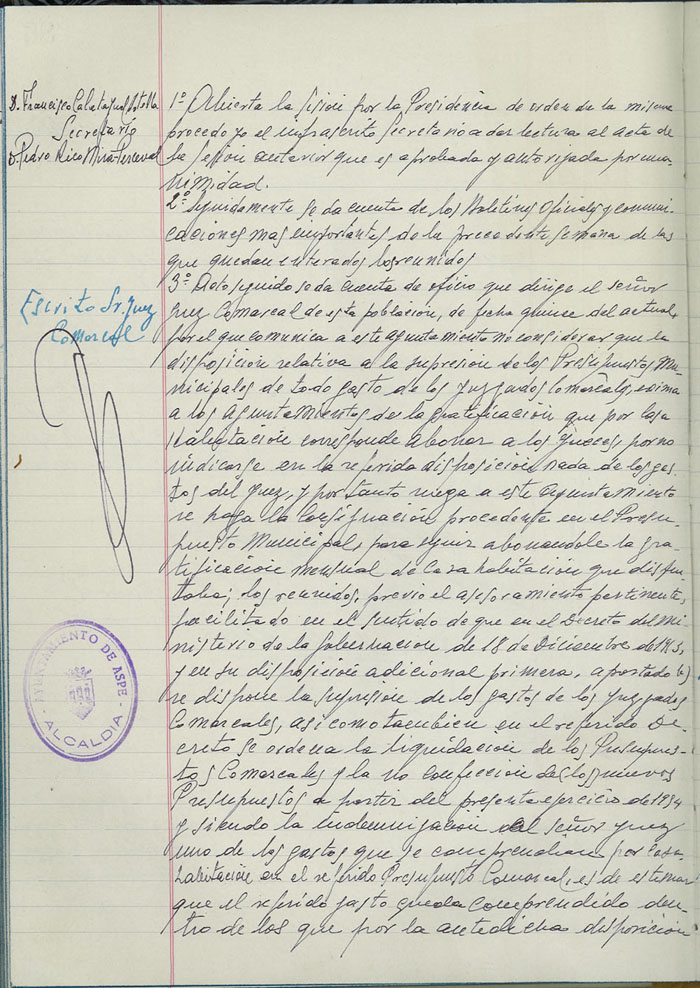 D. Francisco Calatayud Botella
Secretario
D. Pedro Rico Mira-Perceval
1º Abierta la sesión por la Presidencia de orden de la misma
procedo yo el infrascrito Secretario a dar lectura al acta de
la sesión anterior que es aprobada y autorizada por una-
nimidad.
2º Seguidamente se da cuenta de los Boletines Oficiales y comuni-
caciones mas importantes de la precedente semana de las
que quedan enterados los reunidos
Escrito Sr. Juez
Comarcal
3º Acto seguido se da cuenta de oficio que dirige el señor
Juez Comarcal de esta población, de fecha quince del actual,
por el que comunica a este Ayuntamiento no considerar que la
disposición relativa a la supresión de los Presupuestos Mu-
nicipales de todo gasto de los Juzgados Comarcales, exima
a los Ayuntamientos de la gratificación que por Casa
Habitación corresponde abonar a los Jueces, por no
indicarse en la referida disposición nada de los gas-
tos del Juez, y por tanto ruega a este Ayuntamiento
se haga la consignación procedente en el Presu-
puesto Municipal, para seguir abonandole la gra-
tificación mensual de Casa habitación que disfru-
taba; los reunidos, previo el asesoramiento pertinente,
facilitado en el sentido de que en el Decreto del Mi-
nisterio de la Gobernación de 18 de Diciembre de 1953,
y en su disposición adicional primera, apartado
se dispone la supresión de los gastos de los Juzgados
Comarcales, asi como tambien en el referido De-
creto se ordena la liquidación de los Presupues-
tos Comarcales y la no confección de los nuevos
Presupuestos a partir del presente ejercicio de 1954
y siendo la indemnización al señor Juez
uno de los gastos que se comprendian por Casa
habitación en el referido Presupuesto Comarcal, es de estimar
que el referido gasto queda comprendido den-
tro de los que por la antedicha disposición
AYUNTAMIENTO DE ASPE
ALCALDIA